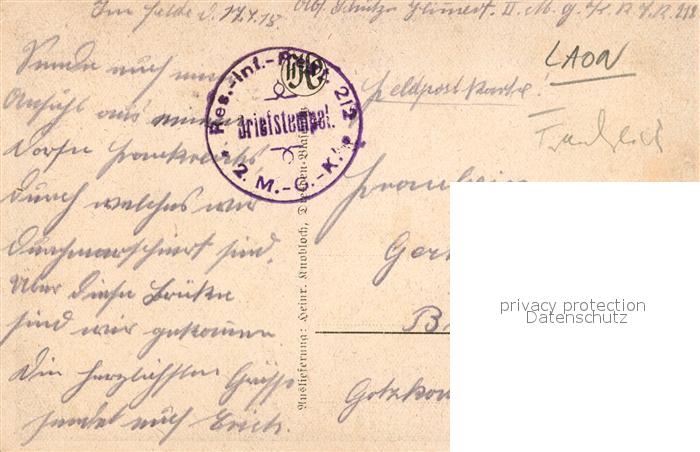 Im Felde d. 17.4.15. Abs. Schütze II. M. G. K. R. J. R. 212
LAON
Feldpostkarte!
Res.-Inf.-Regt. 212
Briefstempel.
2. M.-G.-K.
Sende auch
Ansicht aus einem
Dorfe Frankreichs
durch welches wir
durchmarschiert sind.
Über diese Brücke
sind wir gekommen
Die herzlichsten Grüsse
sendet euch Erich.
Auslieferung: Heinr. Knobloch, Dresden-Blas
Fräulein
Ger
B
Gotzkow
privacy protection
Datenschutz